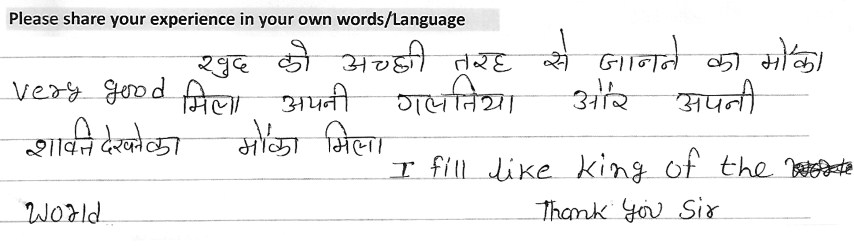 Please share your experience in your own words/Language
खुद को अच्छी तरह से जानने का मौका
very good मिला अपनी गलतिया और अपनी
शक्ति देखनेका मौका मिला
I fill like king of the
world Thank you Sir